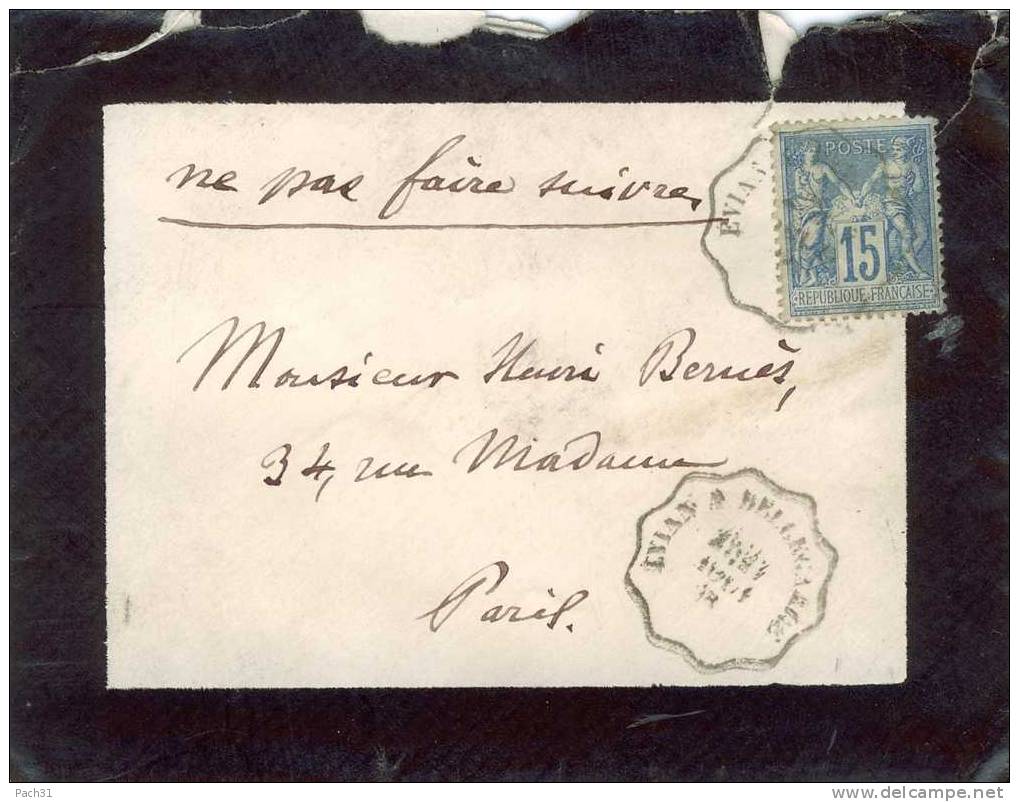 ne pas faire suivre
POSTE
15
REPUBLIQUE FRANÇAISE
EVIAN
Monsieur Henri Bernès,
34, rue Madame
Paris.
EVIAN A BELLEGARDE
Pach31
www.delcampe.net